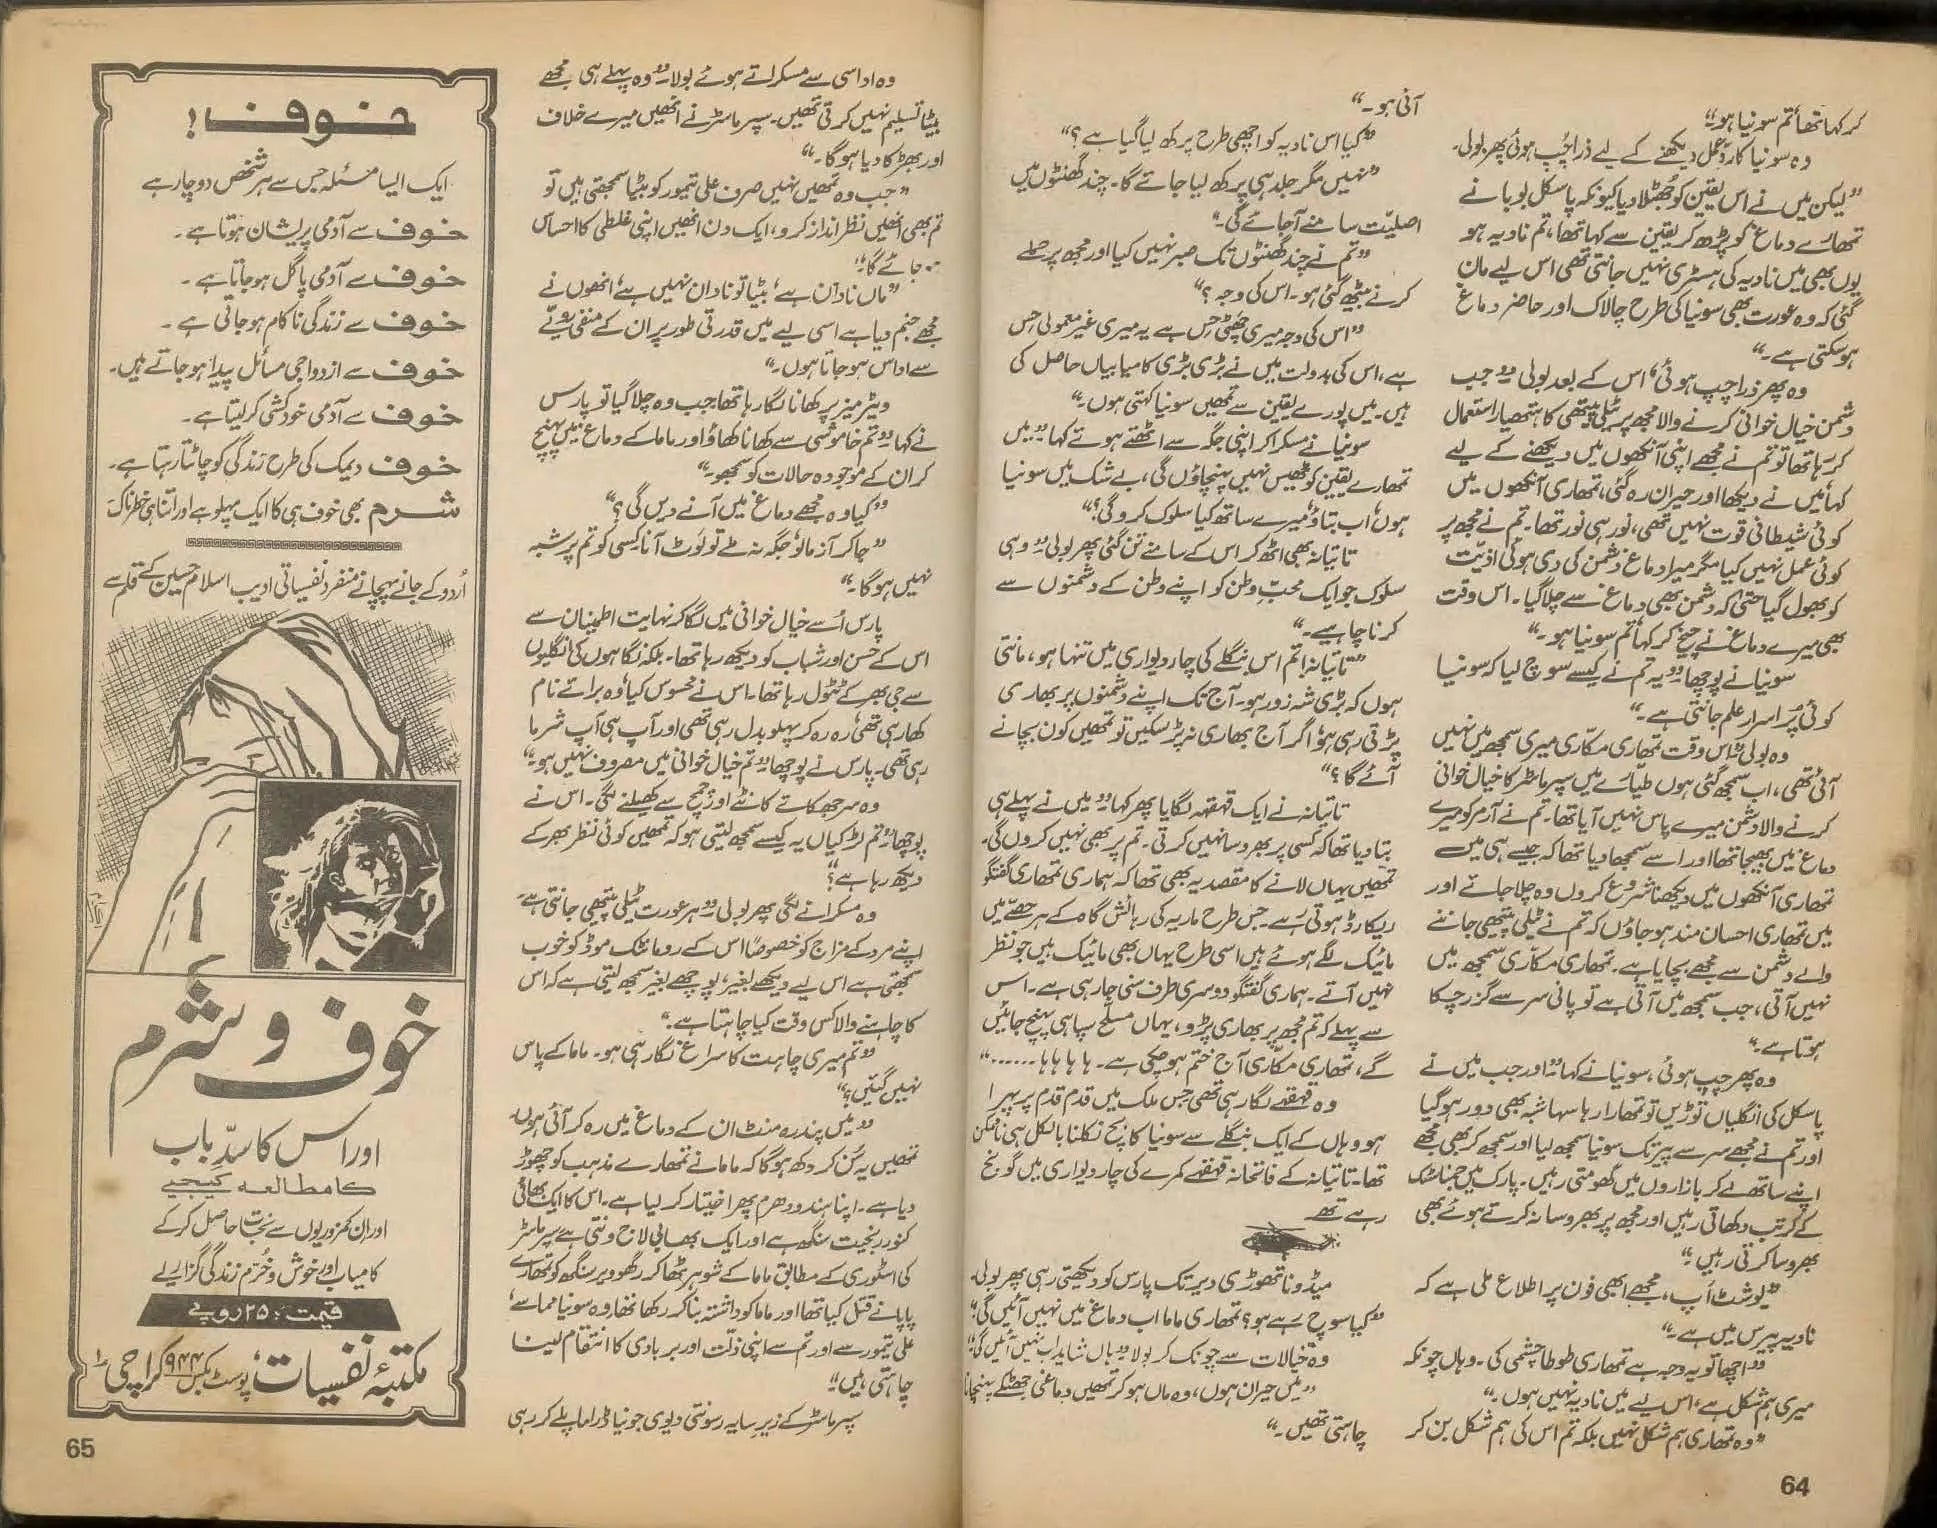 کر کہا تھا تم سونیا ہو۔“
وہ سونیا کا ردِّعمل دیکھنے کے لیے ذرا چپ ہوئی پھر بولی۔
”لیکن میں نے اس یقین کو جھٹلا دیا کیونکہ پاسکل بوبا نے
تمھارے دماغ کو پڑھ کر یقین سے کہا تھا، تم نادیہ ہو
یوں بھی میں نادیہ کی ہسٹری نہیں جانتی تھی اس لیے مان
گئی کہ وہ عورت بھی سونیا کی طرح چالاک اور حاضر دماغ
ہوسکتی ہے۔“
وہ پھر ذرا چپ ہوئی‘ اس کے بعد بولی ”جب
دشمن خیال خوانی کرنے والا مجھ پر ٹیلی پیتھی کا ہتھیار استعمال
کررہا تھا تو تم نے مجھے اپنی آنکھوں میں دیکھنے کے لیے
کہا‘ میں نے دیکھا اور حیران رہ گئی، تمھاری آنکھوں میں
کوئی شیطانی قوت نہیں تھی، نور ہی نور تھا۔ تم نے مجھ پر
کوئی عمل نہیں کیا مگر میرا دماغ دشمن کی دی ہوئی اذیّت
کو بھول گیا حتیٰ کہ دشمن بھی دماغ سے چلا گیا۔ اس وقت
بھی میرے دماغ نے چیخ کر کہا‘ تم سونیا ہو۔“
سونیا نے پوچھا ”یہ تم نے کیسے سوچ لیا کہ سونیا
کوئی پُراسرار علم جانتی ہے۔“
وہ بولی ”اس وقت تمھاری مکّاری میری سمجھ میں نہیں
آئی تھی، اب سمجھ گئی ہوں طیّارے میں سپر ماسٹر کا خیال خوانی
کرنے والا دشمن میرے پاس نہیں آیا تھا۔ تم نے آرمر کو میرے
دماغ میں بھیجا تھا اور اسے سمجھا دیا تھا کہ جیسے ہی میں
تمھاری آنکھوں میں دیکھنا شروع کروں وہ چلا جائے اور
میں تمھاری احسان مند ہوجاؤں کہ تم نے ٹیلی پیتھی جاننے
والے دشمن سے مجھے بچایا ہے۔ تمھاری مکّاری سمجھ میں
نہیں آتی، جب سمجھ میں آتی ہے تو پانی سر سے گزر چکا
ہوتا ہے۔“
وہ پھر چپ ہوئی، سونیا نے کہا ”اور جب میں نے
پاسکل کی انگلیاں توڑیں تو تمھارا رہا سہا شبہ بھی دور ہوگیا
اور تم نے مجھے سر سے پیر تک سونیا سمجھ لیا اور سمجھ کر بھی مجھے
اپنے ساتھ لے کر بازاروں میں گھومتی رہیں۔ پارک میں جمناسٹک
کے کرتب دکھاتی رہیں اور مجھ پر بھروسا نہ کرتے ہوئے بھی
بھروسا کرتی رہیں۔“
”یوشٹ اَپ، مجھے ابھی فون پر اطلاع ملی ہے کہ
نادیہ پیرس میں ہے۔“
”اچھا تو یہ وجہ ہے تمھاری طوطا چشمی کی۔ وہاں چونکہ
میری ہم شکل ہے، اس لیے میں نادیہ نہیں ہوں۔“
”وہ تمھاری ہم شکل نہیں بلکہ تم اس کی ہم شکل بن کر
آئی ہو۔“
”کیا اس نادیہ کو اچھی طرح پرکھ لیا گیا ہے؟“
”نہیں مگر جلد ہی پرکھ لیا جائے گا۔ چند گھنٹوں میں
اصلیّت سامنے آجائے گی۔“
”تم نے چند گھنٹوں تک صبر نہیں کیا اور مجھ پر حملے
کرنے بیٹھ گئی ہو۔ اس کی وجہ؟“
”اس کی وجہ میری چھٹی حِس ہے یہ میری غیر معمولی حِس
ہے، اس کی بدولت میں نے بڑی بڑی کامیابیاں حاصل کی
ہیں۔ میں پورے یقین سے تمھیں سونیا کہتی ہوں۔“
سونیا نے مسکرا کر اپنی جگہ سے اٹھتے ہوئے کہا ”میں
تمھارے یقین کو ٹھیس نہیں پہنچاؤں گی، بے شک میں سونیا
ہوں‘ اب بتاؤ‘ میرے ساتھ کیا سلوک کرو گی؟“
تاتیانہ بھی اٹھ کر اس کے سامنے تن گئی پھر بولی ”وہی
سلوک جو ایک محبِّ وطن کو اپنے وطن کے دشمنوں سے
کرنا چاہیے۔“
”تاتیانہ! تم اس بنگلے کی چار دیواری میں تنہا ہو، مانتی
ہوں کہ بڑی شہ زور ہو۔ آج تک اپنے دشمنوں پر بھاری
پڑتی رہی ہو‘ اگر آج بھاری نہ پڑ سکیں تو تمھیں کون بچانے
آئے گا؟“
تاتیانہ نے ایک قہقہہ لگایا پھر کہا ”میں نے پہلے ہی
بتا دیا تھا کہ کسی پر بھروسا نہیں کرتی۔ تم پر بھی نہیں کروں گی۔
تمھیں یہاں لانے کا مقصد یہ بھی تھا کہ ہماری تمھاری گفتگو
ریکارڈ ہوتی رہے۔ جس طرح ماریہ کی رہائش گاہ کے ہر حصّے میں
مائیک لگے ہوئے ہیں اسی طرح یہاں بھی مائیک ہیں جو نظر
نہیں آتے۔ ہماری گفتگو دوسری طرف سنی جا رہی ہے۔ اس
سے پہلے کہ تم مجھ پر بھاری پڑو، یہاں مسلّح سپاہی پہنچ جائیں
گے، تمھاری مکّاری آج ختم ہوچکی ہے۔ ہا ہا ہا ہا......“
وہ قہقہے لگا رہی تھی جس ملک میں قدم قدم پر پہرا
ہو وہاں کے ایک بنگلے سے سونیا کا بچ نکلنا بالکل ہی ناممکن
تھا۔ تاتیانہ کے فاتحانہ قہقہے کمرے کی چار دیواری میں گونج
رہے تھے۔
میڈونا تھوڑی دیر تک پارس کو دیکھتی رہی پھر بولی۔
”کیا سوچ رہے ہو؟ تمھاری ماما اب دماغ میں نہیں آئیں گی؟“
وہ خیالات سے چونک کر بولا ”ہاں شاید اب نہیں آئیں گی۔“
”میں حیران ہوں، وہ ماں ہو کر تمھیں دماغی جھٹکے پہنچانا
چاہتی تھیں۔“
64
وہ اداسی سے مسکراتے ہوئے بولا ”وہ پہلے ہی مجھے
بیٹا تسلیم نہیں کرتی تھیں۔ سپر ماسٹر نے انھیں میرے خلاف
اور بھڑکا دیا ہوگا۔“
”جب وہ تمھیں نہیں صرف علی تیمور کو بیٹا سمجھتی ہیں تو
تم بھی انھیں نظر انداز کرو، ایک دن انھیں اپنی غلطی کا احساس
ہو جائے گا۔“
”ماں نادان ہے‘ بیٹا تو نادان نہیں ہے‘ انھوں نے
مجھے جنم دیا ہے اسی لیے میں قدرتی طور پر ان کے منفی رویّے
سے اداس ہوجاتا ہوں۔“
ویٹر میز پر کھانا لگا رہا تھا جب وہ چلا گیا تو پارس
نے کہا ”تم خاموشی سے کھانا کھاؤ اور ماما کے دماغ میں پہنچ
کر ان کے موجودہ حالات کو سمجھو۔“
”کیا وہ مجھے دماغ میں آنے دیں گی؟“
”جا کر آزمالو‘ جگہ نہ ملے تو لوٹ آنا کسی کو تم پر شبہ
نہیں ہوگا۔“
پارس اُسے خیال خوانی میں لگا کر نہایت اطمینان سے
اس کے حُسن اور شباب کو دیکھ رہا تھا۔ بلکہ نگاہوں کی انگلیوں
سے جی بھر کے ٹٹول رہا تھا۔ اس نے محسوس کیا‘ وہ برائے نام
کھا رہی تھی‘ رہ رہ کر پہلو بدل رہی تھی اور آپ ہی آپ شرما
رہی تھی۔ پارس نے پوچھا ”تم خیال خوانی میں مصروف نہیں ہو۔“
وہ سر جھکائے کانٹے اور چمچ سے کھیلنے لگی۔ اس نے
پوچھا ”تم لڑکیاں یہ کیسے سمجھ لیتی ہو کہ تمھیں کوئی نظر بھر کے
دیکھ رہا ہے؟“
وہ مسکرانے لگی پھر بولی ”ہر عورت ٹیلی پیتھی جانتی ہے۔
اپنے مرد کے مزاج کو خصوصاً اس کے رومانٹک موڈ کو خوب
سمجھتی ہے اس لیے دیکھے بغیر، پوچھے بغیر سمجھ لیتی ہے کہ اس
کا چاہنے والا کس وقت کیا چاہتا ہے۔“
”تم میری چاہت کا سراغ لگا رہی ہو۔ ماما کے پاس
نہیں گئیں؟“
”میں پندرہ منٹ ان کے دماغ میں رہ کر آئی ہوں۔
تمھیں یہ سُن کر دکھ ہوگا کہ ماما نے تمھارے مذہب کو چھوڑ
دیا ہے۔ اپنا ہندو دھرم پھر اختیار کر لیا ہے۔ اس کا ایک بھائی
کنور رنجیت سنگھ ہے اور ایک بھابی لاج ونتی ہے، سپر ماسٹر
کی اسٹوری کے مطابق ماما کے شوہر ٹھاکر رگھوویر سنگھ کو تمھارے
پاپا نے قتل کیا تھا اور ماما کو داشتہ بنا کر رکھا تھا، وہ سونیا مما سے‘
علی تیمور سے اور تم سے اپنی ذلّت اور بربادی کا انتقام لینا
چاہتی ہیں۔“
سپر ماسٹر کے زیرِ سایہ رسونتی دیوی جو نیا ڈراما پلے کر رہی
خوف!
ایک ایسا مسئلہ جس سے ہر شخص دوچار ہے
خوف سے آدمی پریشان ہوتا ہے۔
خوف سے آدمی پاگل ہوجاتا ہے۔
خوف سے زندگی ناکام ہوجاتی ہے۔
خوف سے ازدواجی مسائل پیدا ہوجاتے ہیں۔
خوف سے آدمی خودکشی کرلیتا ہے۔
خوف دیمک کی طرح زندگی کو چاٹتا رہتا ہے۔
شرم بھی خوف ہی کا ایک پہلو ہے اور اتنا ہی خطرناک
اُردو کے جانے پہچانے منفرد نفسیاتی ادیب اسلام حسین کے قلم سے
خوف و شرم
اور اس کا سدِّ باب
کا مطالعہ کیجیے
اور ان کمزوریوں سے نجات حاصل کرکے
کامیاب اور خوش و خرّم زندگی گزاریے
قیمت: ۲۵ روپے
مکتبۂ نفسیات، پوسٹ بکس ۹۴۴ کراچی ۱
65